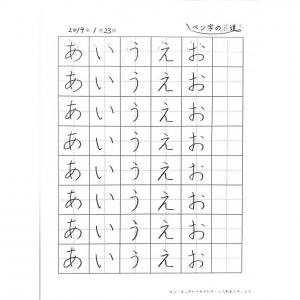 2019年 1月23日
ペン字の花道
あいうえお
あいうえお
あいうえお
あいうえお
あいうえお
あいうえお
あいうえお
あいうえお